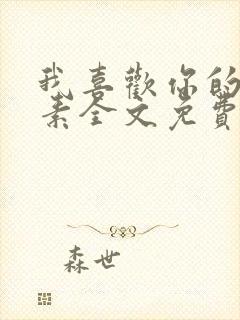 我喜歡你的
素全文免費
森世